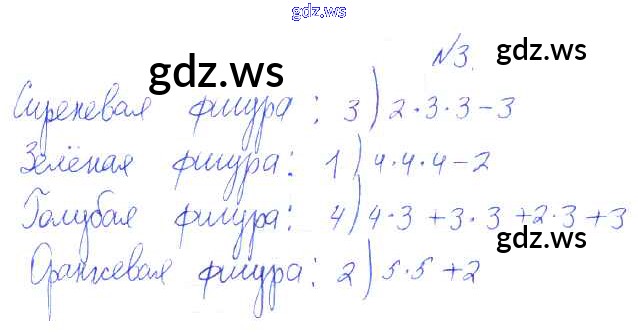 gdz.ws
№3.
gdz.ws
gdz.ws
Сиреневая фигура: 3) 2·3·3-3
Зелёная фигура: 1) 4·4·4-2
Голубая фигура: 4) 4·3+3·3+2·3+3
gdz.ws
Оранжевая фигура: 2) 5·5+2